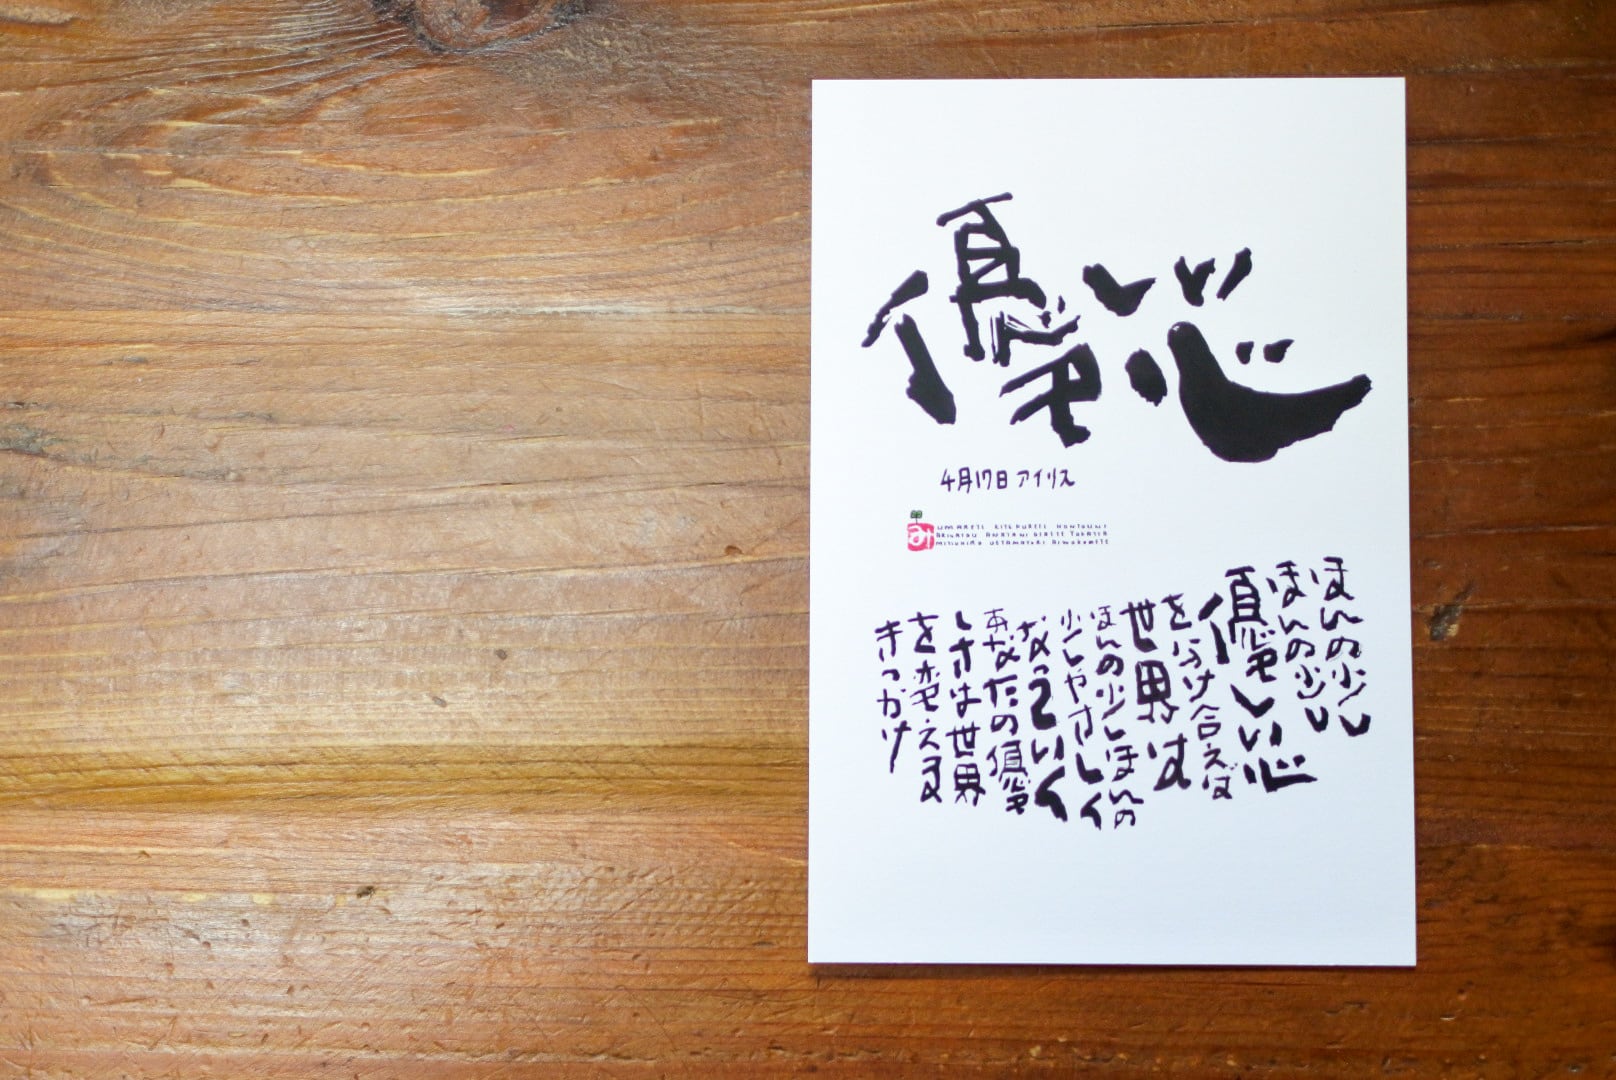 優しい心
4月17日 アイリス
み
UMARETE KITEKURETE HONTOUNI
ARIGATOU ANATANI DEAETE
ほんの少し
ほんの少し
優しい心
を分け合えば
世界は
ほんの少しほんの
少しやさしく
なっていく
あなたの優
しさは世界
を変える
きっかけ